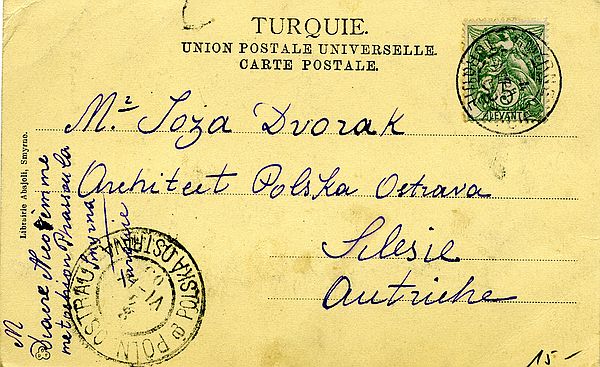 TURQUIE.
UNION POSTALE UNIVERSELLE.
CARTE POSTALE.
5
LEVANT
Mr Joza Dvorak
Architect Polska Ostrava
Silesie
Autriche
Librairie Abajoli, Smyrne.
M
Diacre
Smyrna
Turquie
POLN. OSTRAU
POLSKÁ OSTRAVA
VI
15-